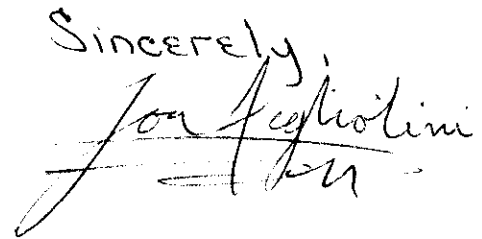 Sincerely,
Jon Figliolini
Jon